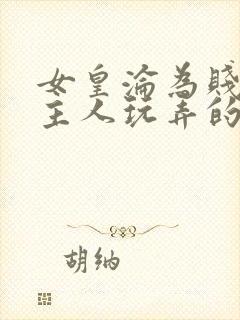 女皇淪為賤
主人玩弄的
胡纳